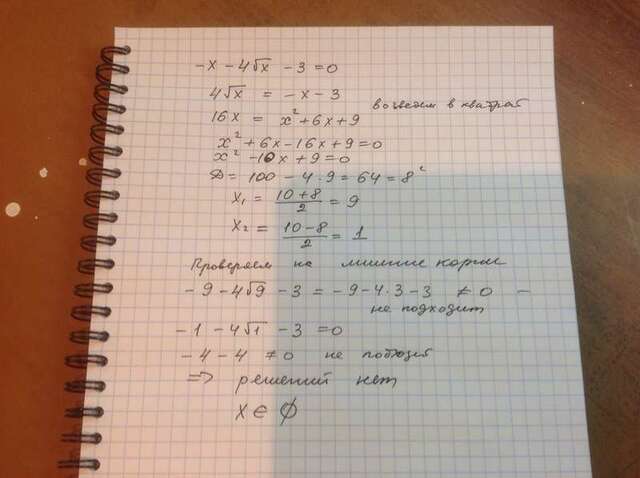 -x - 4√x - 3 = 0
4√x = -x - 3 возведем в квадрат
16x = x² + 6x + 9
x² + 6x - 16x + 9 = 0
x² - 10x + 9 = 0
D = 100 - 4·9 = 64 = 8²
x₁ = (10+8)/2 = 9
x₂ = (10-8)/2 = 1
Проверяем на лишние корни
-9 - 4√9 - 3 = -9 - 4·3 - 3 ≠ 0 -
не подходит
-1 - 4√1 - 3 = 0
-4 - 4 ≠ 0 не подходит
=> решений нет
x ∈ ∅